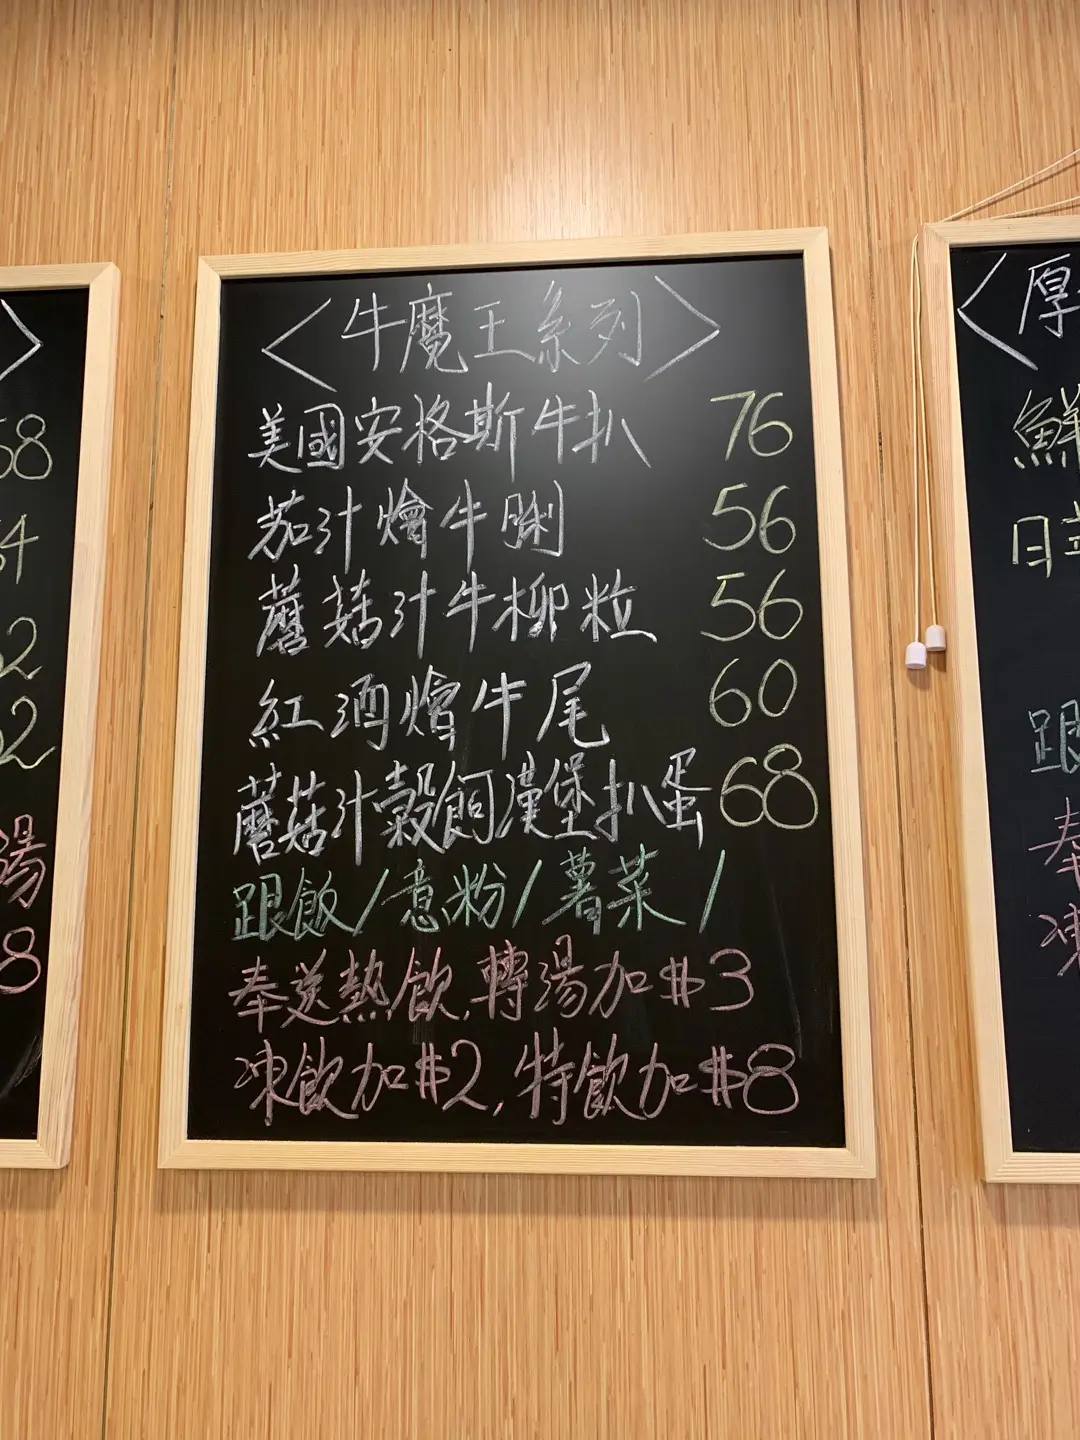 〈牛魔王系列〉
美國安格斯牛扒 76
茄汁燴牛脷 56
蘑菇汁牛柳粒 56
紅酒燴牛尾 60
蘑菇汁穀飼漢堡扒蛋 68
跟飯/意粉/薯菜/
奉送熱飲,轉湯加$3
凍飲加$2,特飲加$8
〉
58
2
2
湯
8
〈厚
鮮
日
跟
奉
凍